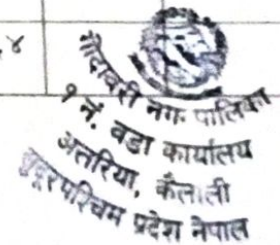 ४
गोदावरी नगरपालिका
१ नं. वडा कार्यालय
अत्तरिया, कैलाली
सुदूरपश्चिम प्रदेश नेपाल